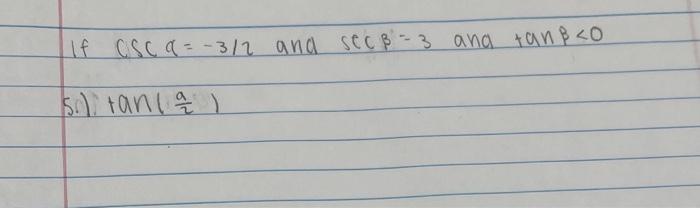 If csc α = -3/2 and sec β = 3 and tan β < 0
5.) tan(α/2)